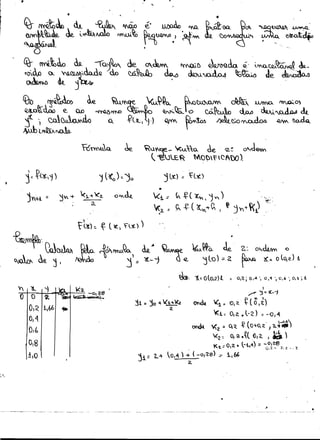 O método de Euler não é usado na prática por requerer uma
amplitude de intervalo muito pequeno, afim de conseguir uma exatidão
razoável.
O método de Taylor de ordem mais elevada é inaceitável de-
vido a necessidade do cálculo das derivadas totais de elevadas
ordens de
Os métodos de Runge Kutta procuram obter uma maior
exatidão e ao mesmo tempo evitar o cálculo das derivadas de
calculando a f(x,y) em pontos selecionados em cada
subintervalo.
Fórmula de Runge-Kutta de 2ª ordem
(EULER MODIFICADO)
y' = f(x,y) y(x₀) = y₀ y(x) = F(x)
yₙ₊₁ = yₙ + k₁+k₂ / 2 onde k₁ = h f(xₙ, yₙ)
k₂ = h f(xₙ+h, yₙ+k₁)
F'(x) = f(x, F(x))
Exemplo
Calcular pela fórmula de Runge Kutta de 2ª ordem o
valor de y, sendo y' = x-y e y(0) = 2 para x = 0(0,2)1
x = 0(0,2)1 = 0,2; 0,4; 0,6; 0,8; 1
n x y k₁ k₂
y' = x-y
0 0 2 -0,28
0,2 1,66
0,4
0,6
0,8
1,0
y₁ = y₀ + k₁+k₂ / 2 onde k₁ = 0,2 f(0,2)
k₁ = 0,2 . (-2) = -0,4
onde k₂ = 0,2 f(0+0,2
k₂ = 0,2 . f(0,2
k₂ = 0,2 . (-1,4) = -0,28
y₁ = 2 + (-0,4) + (-0,28) / 2 = 1,66